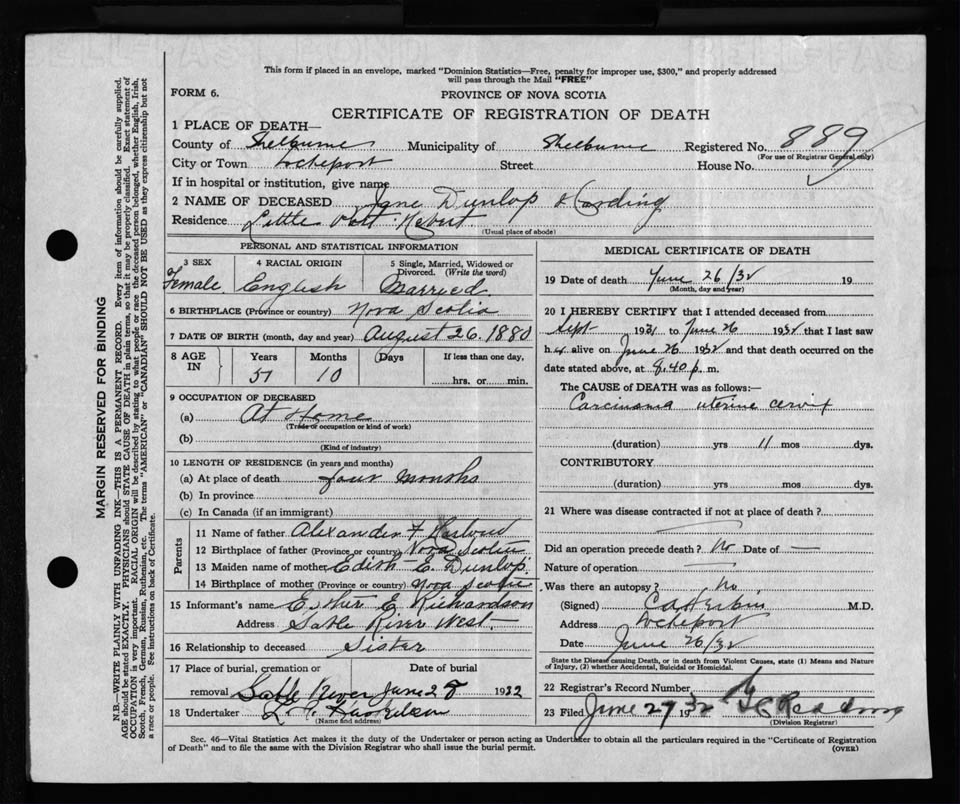 This form if placed in an envelope, marked "Dominion Statistics—Free, penalty for improper use, $300," and properly addressed
will pass through the Mail "FREE"
FORM 6.
PROVINCE OF NOVA SCOTIA
CERTIFICATE OF REGISTRATION OF DEATH
1 PLACE OF DEATH—
County of Shelburne Municipality of Shelburne Registered No. 889
(For use of Registrar General only)
City or Town Lockeport Street House No.
If in hospital or institution, give name
2 NAME OF DECEASED Jane Dunlop Harding
Residence Little Port Hebert
(Usual place of abode)
PERSONAL AND STATISTICAL INFORMATION
3 SEX Female
4 RACIAL ORIGIN English
5 Single, Married, Widowed or Divorced. (Write the word) Married
6 BIRTHPLACE (Province or country) Nova Scotia
7 DATE OF BIRTH (month, day and year) August 26. 1880
8 AGE IN Years Months Days If less than one day,
51 10 hrs. or min.
9 OCCUPATION OF DECEASED
(a) At Home
(Trade or occupation or kind of work)
(b)
(Kind of industry)
10 LENGTH OF RESIDENCE (in years and months)
(a) At place of death four months
(b) In province
(c) In Canada (if an immigrant)
Parents
11 Name of father Alexander F
12 Birthplace of father (Province or country) Nova Scotia
13 Maiden name of mother Edith E. Dunlop
14 Birthplace of mother (Province or country) Nova Scotia
15 Informant's name Esther E. Richardson
Address Sable River West
16 Relationship to deceased Sister
17 Place of burial, cremation or Date of burial
removal Sable River June 28 1932
18 Undertaker
(Name and address)
MEDICAL CERTIFICATE OF DEATH
19 Date of death June 26/32 19
(Month, day and year)
20 I HEREBY CERTIFY that I attended deceased from
Sept 1931 to June 26 1932 that I last saw
h er alive on June 26 1932 and that death occurred on the
date stated above, at 9.40 p. m.
The CAUSE of DEATH was as follows:—
Carcinoma uterine cervix
(duration) yrs 11 mos dys.
CONTRIBUTORY
(duration) yrs mos dys.
21 Where was disease contracted if not at place of death?
Did an operation precede death? No Date of —
Nature of operation
Was there an autopsy? No
(Signed) M.D.
Address Lockeport
Date June 26/32
State the Disease causing Death, or in death from Violent Causes, state (1) Means and Nature
of Injury, (2) whether Accidental, Suicidal or Homicidal.
22 Registrar's Record Number
23 Filed June 27 1932
(Division Registrar)
Sec. 46—Vital Statistics Act makes it the duty of the Undertaker or person acting as Undertaker to obtain all the particulars required in the "Certificate of Registration
of Death" and to file the same with the Division Registrar who shall issue the burial permit.
(OVER)
MARGIN RESERVED FOR BINDING
N.B.—WRITE PLAINLY WITH UNFADING INK—THIS IS A PERMANENT RECORD. Every item of information should be carefully supplied.
AGE should be stated EXACTLY. PHYSICIANS should STATE CAUSE OF DEATH in plain terms, so that it may be properly classified. Exact statement of
OCCUPATION is very important. RACIAL ORIGIN will be described by stating to what people or race the deceased person belonged, whether English, Irish,
Scotch, French, German, Russian, Ruthenian, etc. The terms "AMERICAN" or "CANADIAN" SHOULD NOT BE USED as they express citizenship but not
a race or people. See instructions on back of Certificate.